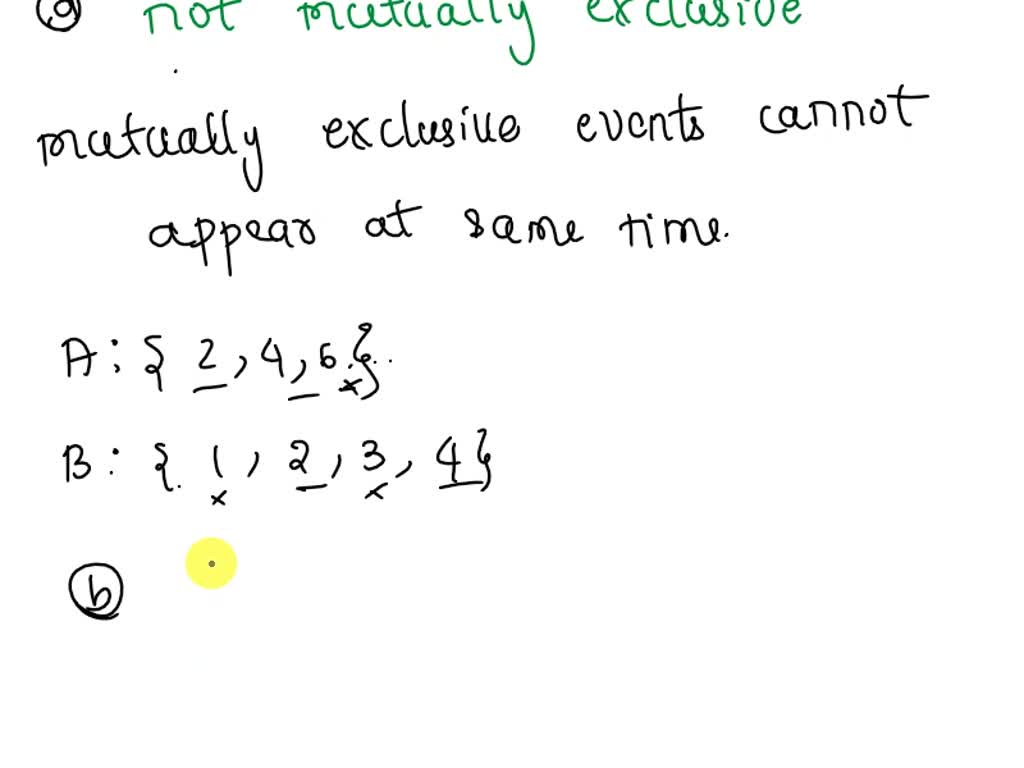 ⓐ not mutually exclusive
mutually exclusive events cannot
appear at same time.
A: { 2, 4, 6 }
B: { 1, 2, 3, 4 }
ⓑ